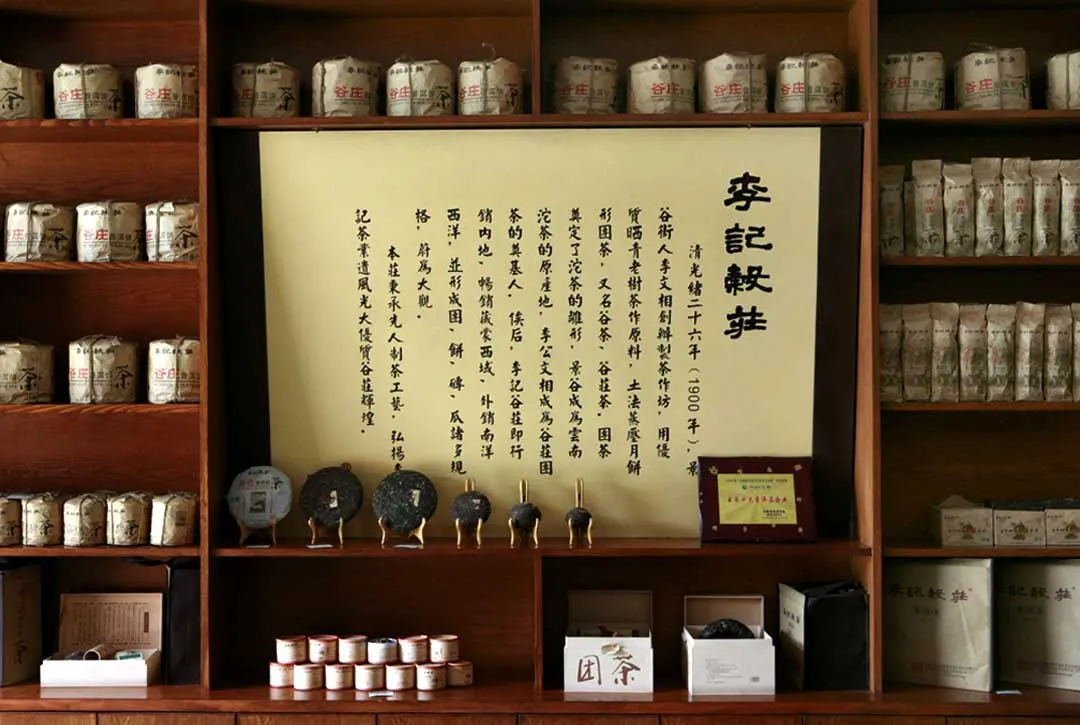 李記穀莊
清光緒二十六年（1900年），景
谷街人李文相創辦製茶作坊，用優
質晒青老樹茶作原料，土法蒸壓月餅
形团茶，又名谷茶、谷莊茶。团茶
奠定了沱茶的雛形，景谷成爲雲南
沱茶的原產地，李公文相成爲谷莊团
茶的奠基人。俟后，李記谷莊即行
銷内地、暢銷藏蒙西域、外銷南洋
西洋，並形成团、餅、磚、瓜諸多規
格，蔚爲大觀。
本莊秉承先人制茶工藝，弘揚
記茶業遺風光大優質谷莊輝煌。
谷庄
茶
谷庄
茶
谷庄
谷庄
谷庄
谷庄
谷庄
谷庄
茶
团茶
李記穀莊
記穀莊